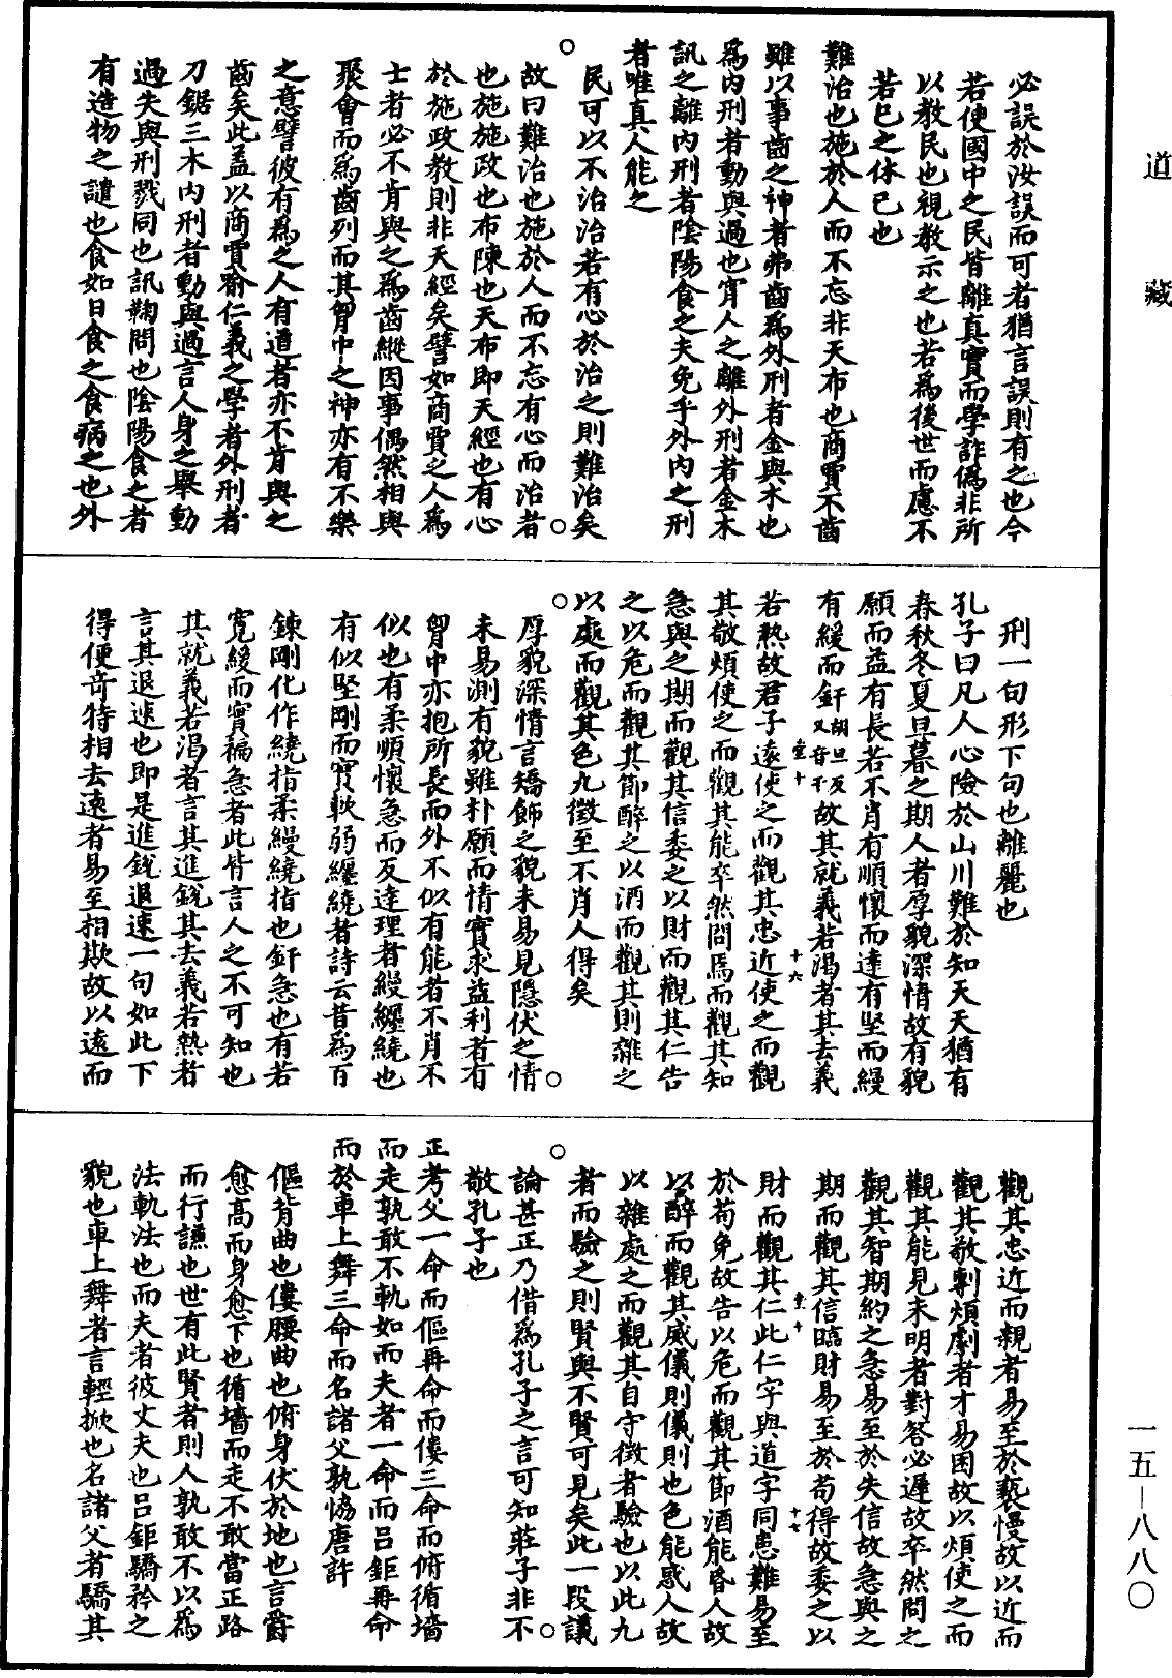 道藏
必誤於汝誤而可者猶言誤則有之也今
若使國中之民皆離真實而學詐偽非所
以教民也視教示之也若為後世而慮不
若已之休已也
難治也施於人而不忘非天布也商賈不齒
雖以事齒之神者弗齒為外刑者金與木也
為內刑者動與過也宵人之離外刑者金木
訊之離內刑者陰陽食之夫免乎外內之刑
者唯真人能之
民可以不治治若有心於治之則難治矣
故曰難治也施於人而不忘有心而治者
也施施政也布陳也天布即天經也有心
於施政教則非天經矣譬如商賈之人為
士者必不肯與之為齒縱因事偶然相與
聚會而為齒列而其胷中之神亦有不樂
之意譬彼有為之人有道者亦不肯與之
齒矣此盖以商賈喻仁義之學者外刑者
刀鋸三木內刑者動與過言人身之舉動
過失與刑戮同也訊鞠問也陰陽食之者
有造物之譴也食如日食之食病之也外
刑一句形下句也離麗也
孔子曰凡人心險於山川難於知天天猶有
春秋冬夏旦暮之期人者厚貌深情故有貌
願而益有長若不肖有順懷而達有堅而縵
有緩而釬胡旦反又音干故其就義若渴者其去義
若熱故君子遠使之而觀其忠近使之而觀
其敬煩使之而觀其能卒然問焉而觀其知
急與之期而觀其信委之以財而觀其仁告
之以危而觀其節醉之以酒而觀其則雜之
以處而觀其色九徵至不肖人得矣
厚貌深情言矯飾之貌未易見隱伏之情
未易測有貌雖朴願而情實求益利者有
胷中亦抱所長而外不似有能者不肖不
似也有柔順懷急而反達理者縵纒繞也
有似堅剛而實軟弱纒繞者詩云昔為百
鍊剛化作繞指柔縵繞指也釬急也有若
寬緩而實褊急者此皆言人之不可知也
其就義若渴者言其進銳其去義若熱者
言其退速也即是進銳退速一句如此下
得便奇特相去遠者易至相欺故以遠而
觀其忠近而親者易至於褻慢故以近而
觀其敬剸煩劇者才易困故以煩使之而
觀其能見未明者對答必遲故卒然問之
觀其智期約之急易至於失信故急與之
期而觀其信臨財易至於苟得故委之以
財而觀其仁此仁字與道字同患難易至
於苟免故告以危而觀其節酒能昏人故
以醉而觀其威儀則儀則也色能惑人故
以雜處之而觀其自守徵者驗也以此九
者而驗之則賢與不賢可見矣此一段議
論甚正乃借為孔子之言可知莊子非不
敬孔子也
正考父一命而傴再命而僂三命而俯循墻
而走孰敢不軌如而夫者一命而呂鉅再命
而於車上舞三命而名諸父孰恊唐許
傴背曲也僂腰曲也俯身伏於地也言爵
愈高而身愈下也循墻而走不敢當正路
而行謙也世有此賢者則人孰敢不以為
法軌法也而夫者彼丈夫也呂鉅驕矜之
貌也車上舞者言輕掀也名諸父者驕其
一五—八八〇